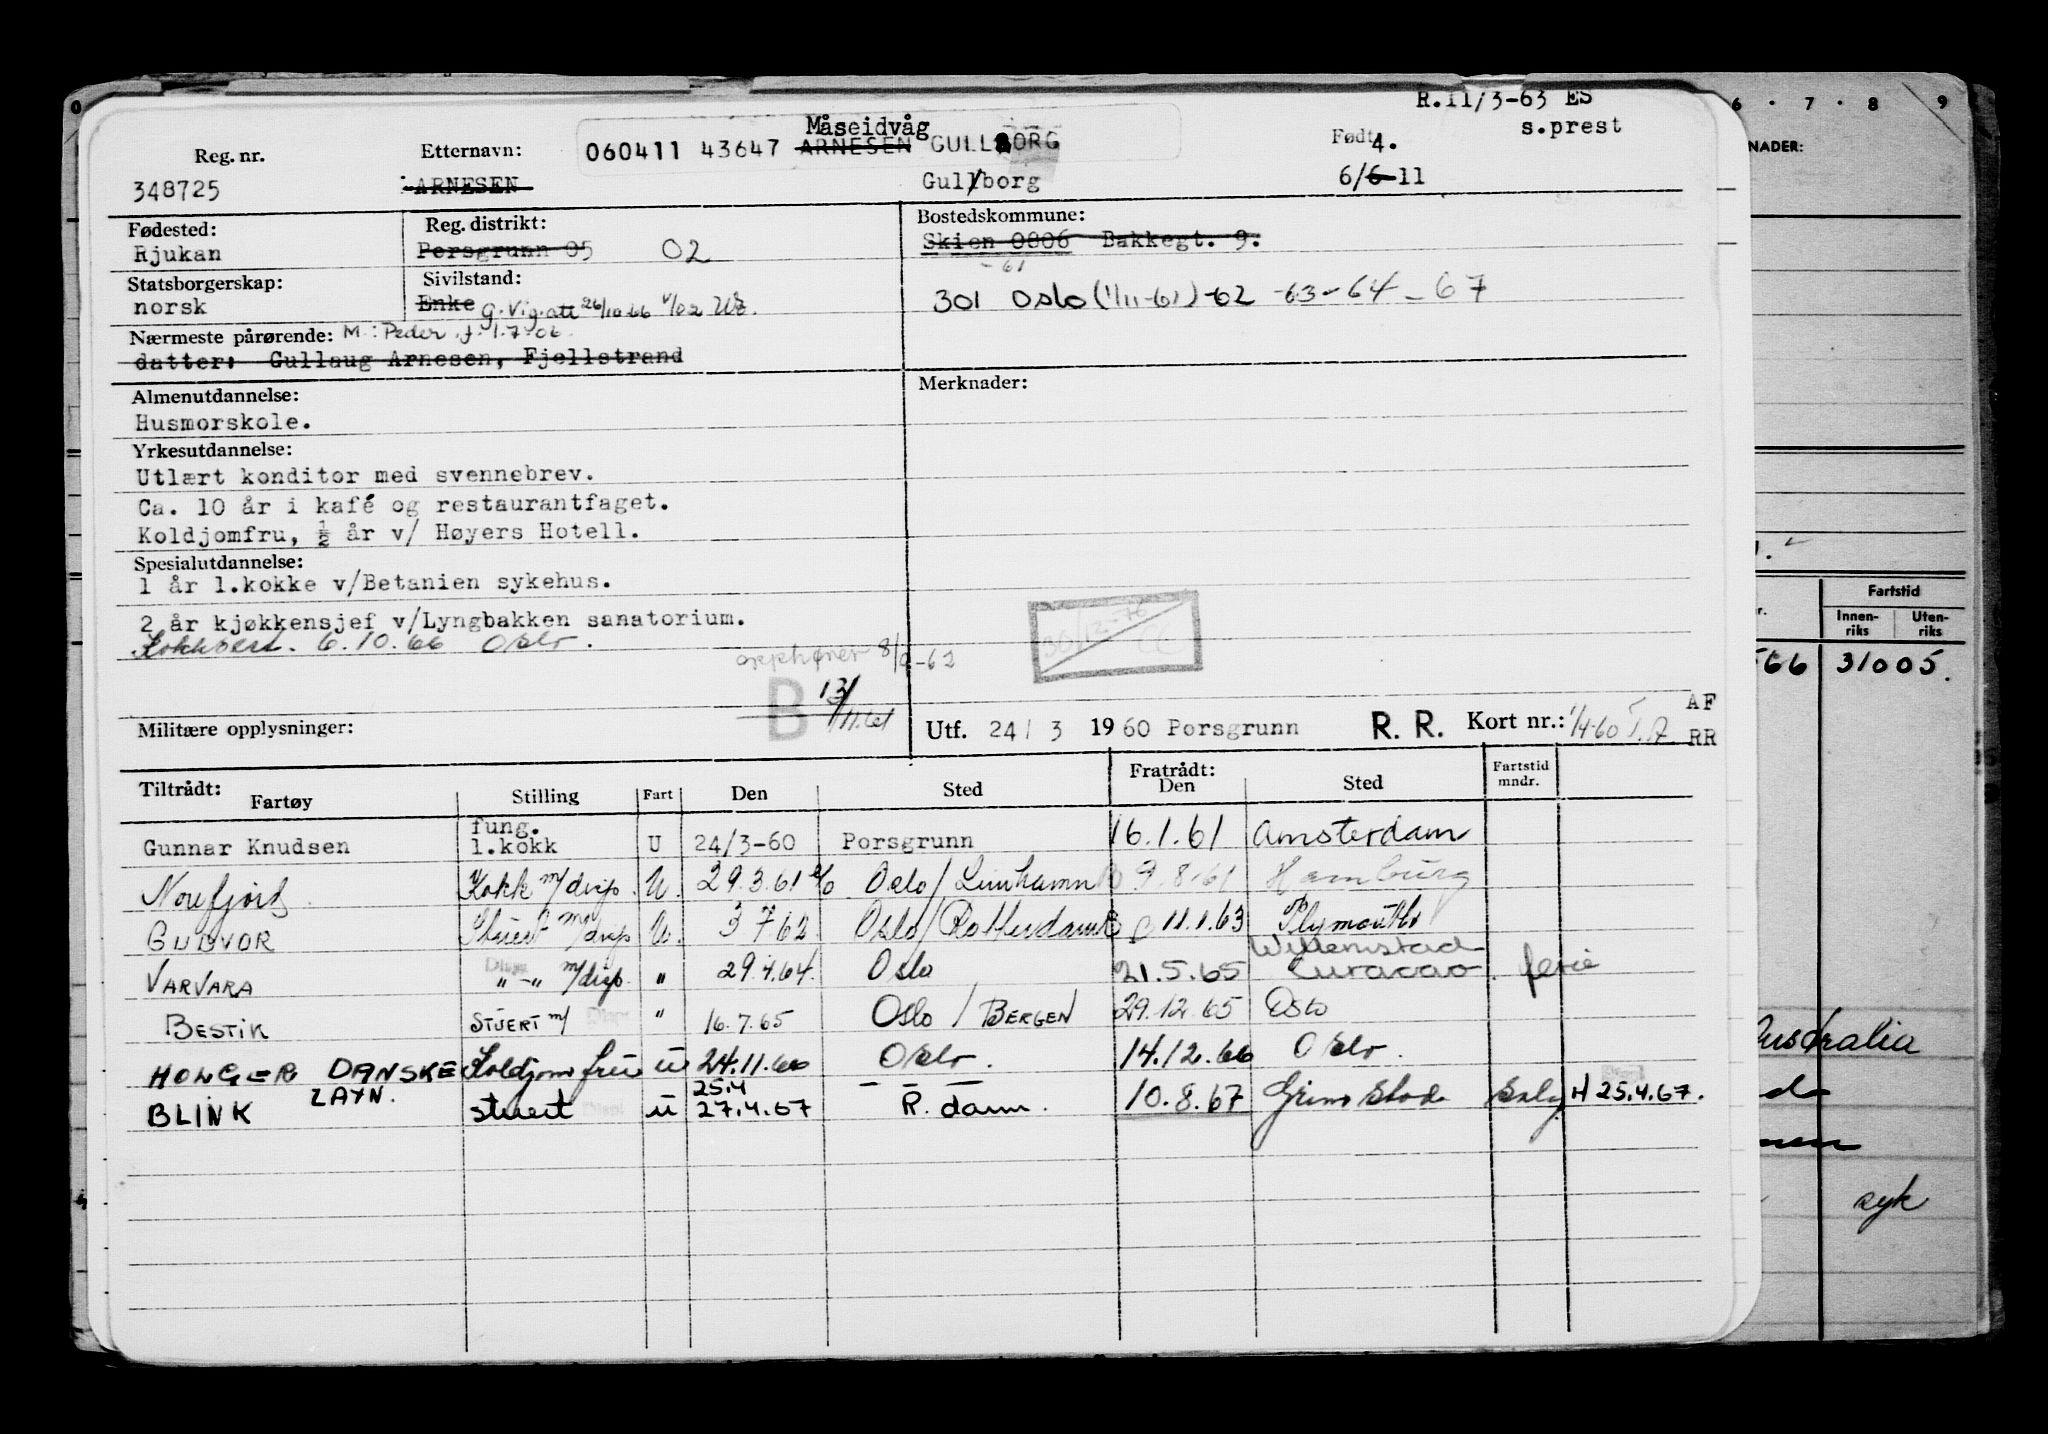 R.11/3-63 ES
Måseidvåg
s.prest
Reg. nr. Etternavn: 060411 43647 ARNESEN GULLBORG Født 4.
348725 ARNESEN Gullborg 6/6-11
Fødested: Reg. distrikt: Bostedskommune:
Rjukan Porsgrunn 05 02 Skien 0806 Bakkegt. 9.
-61
Statsborgerskap: Sivilstand:
norsk Enke g. Vig.att 26/10-66 v/02 301 Oslo (1/11-61)-62 -63-64-67
Nærmeste pårørende: M.: Peder f. 1.7.06.
datter: Gullaug Arnesen, Fjellstrand
Almenutdannelse: Merknader:
Husmorskole.
Yrkesutdannelse:
Utlært konditor med svennebrev.
Ca. 10 år i kafé og restaurantfaget.
Koldjomfru, ½ år v/ Høyers Hotell.
Spesialutdannelse:
1 år 1.kokke v/Betanien sykehus.
2 år kjøkkensjef v/Lyngbakken sanatorium.
Kokksert. 6.10.66 Oslo.
opphører 8/9-62
30/12-76
B 13/11.61
Militære opplysninger: Utf. 24/ 3 1960 Porsgrunn R. R. Kort nr.: 1/4-60 AF
RR
Tiltrådt: Fratrådt: Fartstid
Fartøy Stilling Fart Den Sted Den Sted mndr.
Gunnar Knudsen fung. 1.kokk U 24/3-60 Porsgrunn 16.1.61 Amsterdam
Norefjord Kokk m/disp. U. 29.3.61 Oslo/Limhamn 9.8.61 Hamburg
GUDVOR Stuert m/disp U. 3 7 62 Oslo/Rotterdam 11.1.63 Plymouth
VARVARA "-" m/disp. " 29.4.64. Oslo 21.5.65 Willemstad Curacao. ferie
BESTIK STUERT m/ Disp " 16.7.65 Oslo / BERGEN 29.12.65 Oslo
HOLGER DANSKE Koldjomfru u 24.11.66 Oslo. 14.12.66 Oslo.
BLINK LAYN. stuert u 25.4 27.4.67 R.dam. 10.8.67 Grimstad Salg H 25.4.67.
6 · 7 · 8 9
NADER:
Fartstid
Innen-
riks
Uten-
riks
566 31005.
Australia
syk